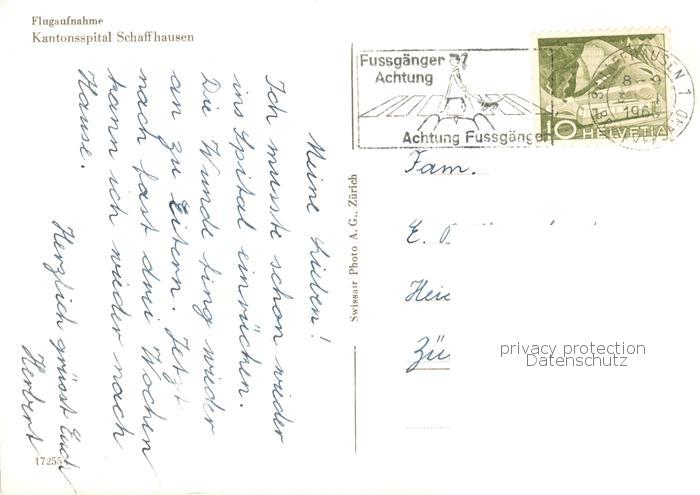 Flugaufnahme
Kantonsspital Schaffhausen
Meine Lieben!
Ich musste schon wieder
ins Spital einrücken.
Die Wunde fing wieder
an zu Eitern. Jetzt
nach fast drei Wochen
kann ich wieder nach
Hause.
Herzlich grüsst Euch
Herbert
17255
Swissair Photo A. G., Zürich
Fussgänger
Achtung
Achtung Fussgänger
HAUSEN 1
8-9
196
10 HELVETIA
Fam.
E.
Hei
Zü
privacy protection
Datenschutz